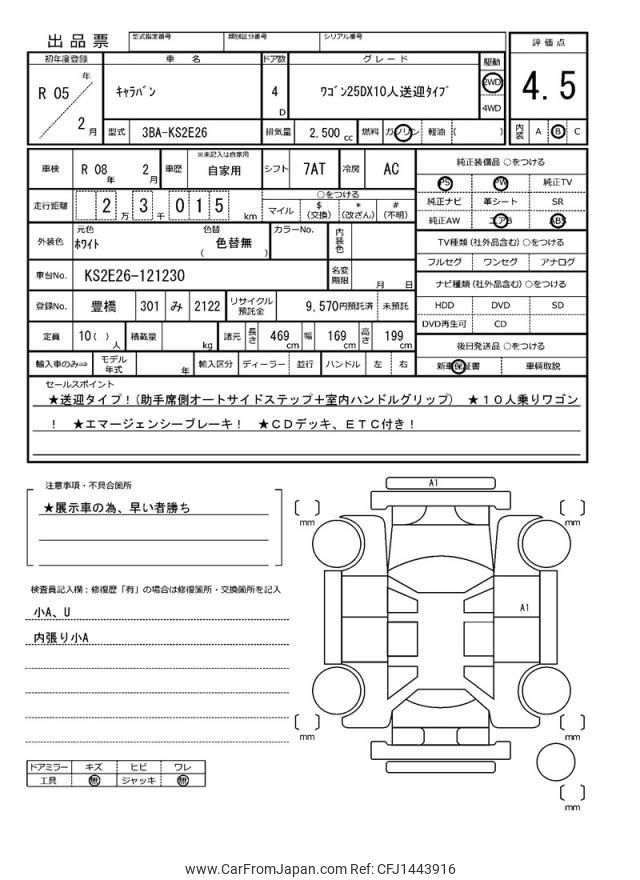 出品票 型式指定番号 類別区分番号 シリアル番号
初年度登録 車 名 ドア数 グレード 駆動 評価点
R 05 年 2 月 キャラバン 4 D ワゴン25DX10人送迎タイプ 2WD 4WD 4.5
型式 3BA-KS2E26 排気量 2,500 cc 燃料 ガソリン 軽油 ( ) 内装 A B C
車検 R 08 年 2 月 車歴 ※未記入は自家用 自家用 シフト 7AT 冷房 AC
走行距離 2 万 3 千 0 1 5 km ○をつける
マイル $ (交換) * (改ざん) # (不明)
外装色 元色 ホワイト 色替 色替無 ( ) カラーNo. 内装色
車台No. KS2E26-121230 名変期限 月 日
登録No. 豊橋 301 み 2122 リサイクル預託金 9,570円預託済 未預託
定員 10( ) 人 積載量 kg 諸元 長さ 469 cm 幅 169 cm 高さ 199 cm
輸入車のみ⇒ モデル年式 年 輸入区分 ディーラー 並行 ハンドル 左 右
純正装備品 ○をつける
PS PW 純正TV
純正ナビ 革シート SR
純正AW エアB ABS
TV種類(社外品含む) ○をつける
フルセグ ワンセグ アナログ
ナビ種類(社外品含む) ○をつける
HDD DVD SD
DVD再生可 CD
後日発送品 ○をつける
新車保証書 車輌取説
セールスポイント
★送迎タイプ!(助手席側オートサイドステップ+室内ハンドルグリップ) ★10人乗りワゴン
! ★エマージェンシーブレーキ! ★CDデッキ、ETC付き!
注意事項・不具合箇所
★展示車の為、早い者勝ち
検査員記入欄:修復歴「有」の場合は修復箇所・交換箇所を記入
小A、U
内張り小A
ドアミラー キズ ヒビ ワレ
工具 無 ジャッキ 無
A1
A1
mm
mm
mm
mm
mm
www.CarFromJapan.com Ref: CFJ1443916